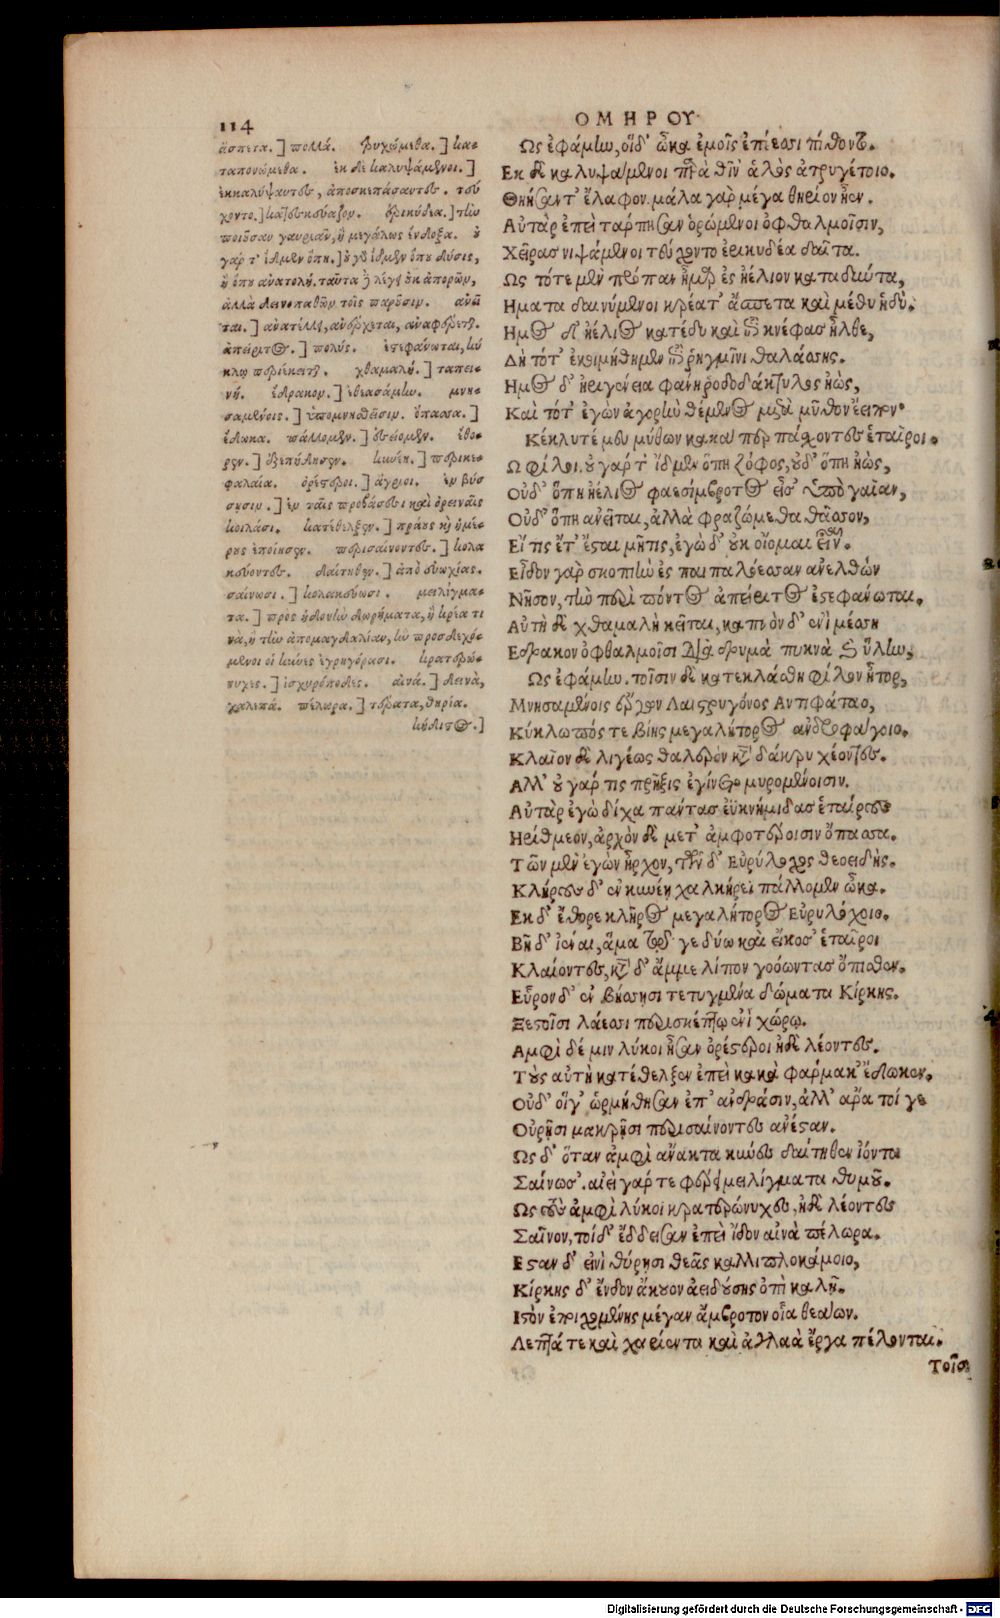 114
ΟΜΗΡΟΥ
ἄσπετα. ] πολλά. ψυχώμεθα. ] κα-
ταπονώμεθα. ἐκ δὲ καλυψάμενοι. ]
ἐκκαλύψαντες, ἀποσκεπάσαντες. τεύ
χοντο. ] κατεσκεύαζον. ἐρικύδεα. ] τὴν
ποιοῦσαν γαυριᾶν, ἢ μεγάλως ἔνδοξα. οὐ
γάρ τ' ἴδμεν ὅπη. ] οὐ γὰρ ἴσμεν ὅπου δύσις,
ἢ ὅπου ἀνατολή. ταῦτα δὲ λέγει οὐκ ἀπορῶν,
ἀλλὰ δεινοπαθῶν τοῖς παροῦσιν. ἀνεῖ
ται. ] ἀνατέλλει, ἀνέρχεται, ἀναφέρεται.
ἀπείριτος. ] πολύς. ἐστεφάνωται, κύ
κλῳ περιέκειται. χθαμαλή. ] ταπει-
νή. ἔδρακον. ] ἐθεασάμην. μνη-
σαμένοις. ] ὑπομνησθεῖσιν. ὄπασσα. ]
ἔδωκα. πάλλομεν. ] ἐσείομεν. ἔθο-
ρεν. ] ἐξεπήδησεν. κυνέη. ] περικε-
φαλαία. ὀρέστεροι. ] ἄγριοι. ἐν βήσ
σῃσιν. ] ἐν ταῖς προβάσεσι καὶ ὀρειναῖς
κοιλάσι. κατέθελξεν. ] πράους καὶ ἡμέ-
ρους ἐποίησεν. περισαίνοντες. ] κολα
κεύοντες. δαίτηθεν. ] ἀπὸ εὐωχίας.
σαίνωσι. ] κολακεύωσι. μειλίγμα-
τα. ] πρὸς ἡδονὴν δωρήματα, ἢ κρέα τι
νὰ, ἢ τὴν ἀπομαγδαλίαν, ἣν προσδεχό-
μενοι οἱ κύνες ἐγρηγόρασι. κρατερώ-
νυχες. ] ἰσχυρόποδες. αἰνά. ] δεινὰ,
χαλεπά. πέλωρα. ] τέρατα, θηρία.
κήδιστος. ]
Ως ἐφάμην, οἵδ' ὦκα ἐμοῖς ἐπέεσσι πίθοντο.
Εκ δὲ καλυψάμενοι παρὰ θῖν' ἁλὸς ἀτρυγέτοιο.
Θηήσαντ' ἔλαφον. μάλα γὰρ μέγα θηρίον ἦεν.
Αὐτὰρ ἐπεὶ τάρπησαν ὁρώμενοι ὀφθαλμοῖσιν,
Χεῖρας νιψάμενοι τεύχοντο ἐρικυδέα δαῖτα.
Ως τότε μὲν πρόπαν ἦμαρ ἐς ἠέλιον καταδύντα,
Ηματα δαινύμενοι κρέατ' ἄσπετα καὶ μέθυ ἡδύ.
Ημος δ' ἠέλιος κατέδυ καὶ ἐπὶ κνέφας ἦλθε,
Δὴ τότ' ἐκοιμήθημεν ἐπὶ ῥηγμῖνι θαλάσσης.
Ημος δ' ἠριγένεια φάνη ῥοδοδάκτυλος ἠὼς,
Καὶ τότ' ἐγὼν ἀγορὴν θέμενος μετὰ μῦθον ἔειπον·
Κέκλυτέ μευ μύθων κακά περ πάσχοντες ἑταῖροι.
Ω φίλοι. οὐ γάρ τ' ἴδμεν ὅπη ζόφος, οὐδ' ὅπη ἠὼς,
Οὐδ' ὅπη ἠέλιος φαεσίμβροτος εἶσ' ὑπὸ γαῖαν,
Οὐδ' ὅπη ἀνεῖται, ἀλλὰ φραζώμεθα θᾶσσον,
Εἴ τις ἔτ' ἔσται μῆτις, ἐγὼ δ' οὐκ οἴομαι εἶναι.
Εἶδον γὰρ σκοπιὴν ἐς παιπαλόεσσαν ἀνελθὼν
Νῆσον, τὴν πέρι πόντος ἀπείριτος ἐστεφάνωται.
Αὐτὴ δὲ χθαμαλὴ κεῖται, καπνὸν δ' ἐνὶ μέσσῃ
Εδρακον ὀφθαλμοῖσι διὰ δρυμὰ πυκνὰ καὶ ὕλην,
Ως ἐφάμην. τοῖσιν δὲ κατεκλάσθη φίλον ἦτορ,
Μνησαμένοις ἔργων Λαιστρυγόνος Αντιφάταο,
Κύκλωπός τε βίης μεγαλήτορος ἀνδροφάγοιο.
Κλαῖον δὲ λιγέως θαλερὸν κατὰ δάκρυ χέοντες.
Αλλ' οὐ γάρ τις πρῆξις ἐγίνετο μυρομένοισιν.
Αὐτὰρ ἐγὼ δίχα πάντας ἐϋκνήμιδας ἑταίρους
Ηρίθμεον, ἀρχὸν δὲ μετ' ἀμφοτέροισιν ὄπασσα.
Τῶν μὲν ἐγὼν ἦρχον, τῶν δ' Εὐρύλοχος θεοειδής.
Κλήρους δ' ἐν κυνέῃ χαλκήρεϊ πάλλομεν ὦκα.
Εκ δ' ἔθορε κλῆρος μεγαλήτορος Εὐρυλόχοιο.
Βῆ δ' ἰέναι, ἅμα τῷδέ γε δύω καὶ εἴκοσ' ἑταῖροι
Κλαίοντες, κατὰ δ' ἄμμε λίπον γοόωντας ὄπισθεν.
Εὗρον δ' ἐν βήσσῃσι τετυγμένα δώματα Κίρκης.
Ξεστοῖσι λάεσσι περισκέπτῳ ἐνὶ χώρῳ.
Αμφὶ δέ μιν λύκοι ἦσαν ὀρέστεροι ἠδὲ λέοντες.
Τοὺς αὐτὴ κατέθελξεν ἐπεὶ κακὰ φάρμακ' ἔδωκεν.
Οὐδ' οἵγ' ὡρμήθησαν ἐπ' ἀνδράσιν, ἀλλ' ἄρα τοί γε
Οὐρῇσι μακρῇσι περισσαίνοντες ἀνέσταν.
Ως δ' ὅταν ἀμφὶ ἄνακτα κύνες δαίτηθεν ἰόντα
Σαίνωσ'. αἰεὶ γάρ τε φέρει μειλίγματα θυμοῦ.
Ως τοὺς ἀμφὶ λύκοι κρατερώνυχες, ἠδὲ λέοντες
Σαῖνον, τοί δ' ἔδδεισαν ἐπεὶ ἴδον αἰνὰ πέλωρα.
Εσταν δ' εἰνὶ θύρῃσι θεᾶς καλλιπλοκάμοιο,
Κίρκης δ' ἔνδον ἄκουον ἀειδούσης ὀπὶ καλῇ.
Ιστὸν ἐποιχομένης μέγαν ἄμβροτον οἷα θεάων.
Λεπτά τε καὶ χαρίεντα καὶ ἀγλαὰ ἔργα πέλονται.
Τοῖσι
Digitalisierung gefördert durch die Deutsche Forschungsgemeinschaft - DFG